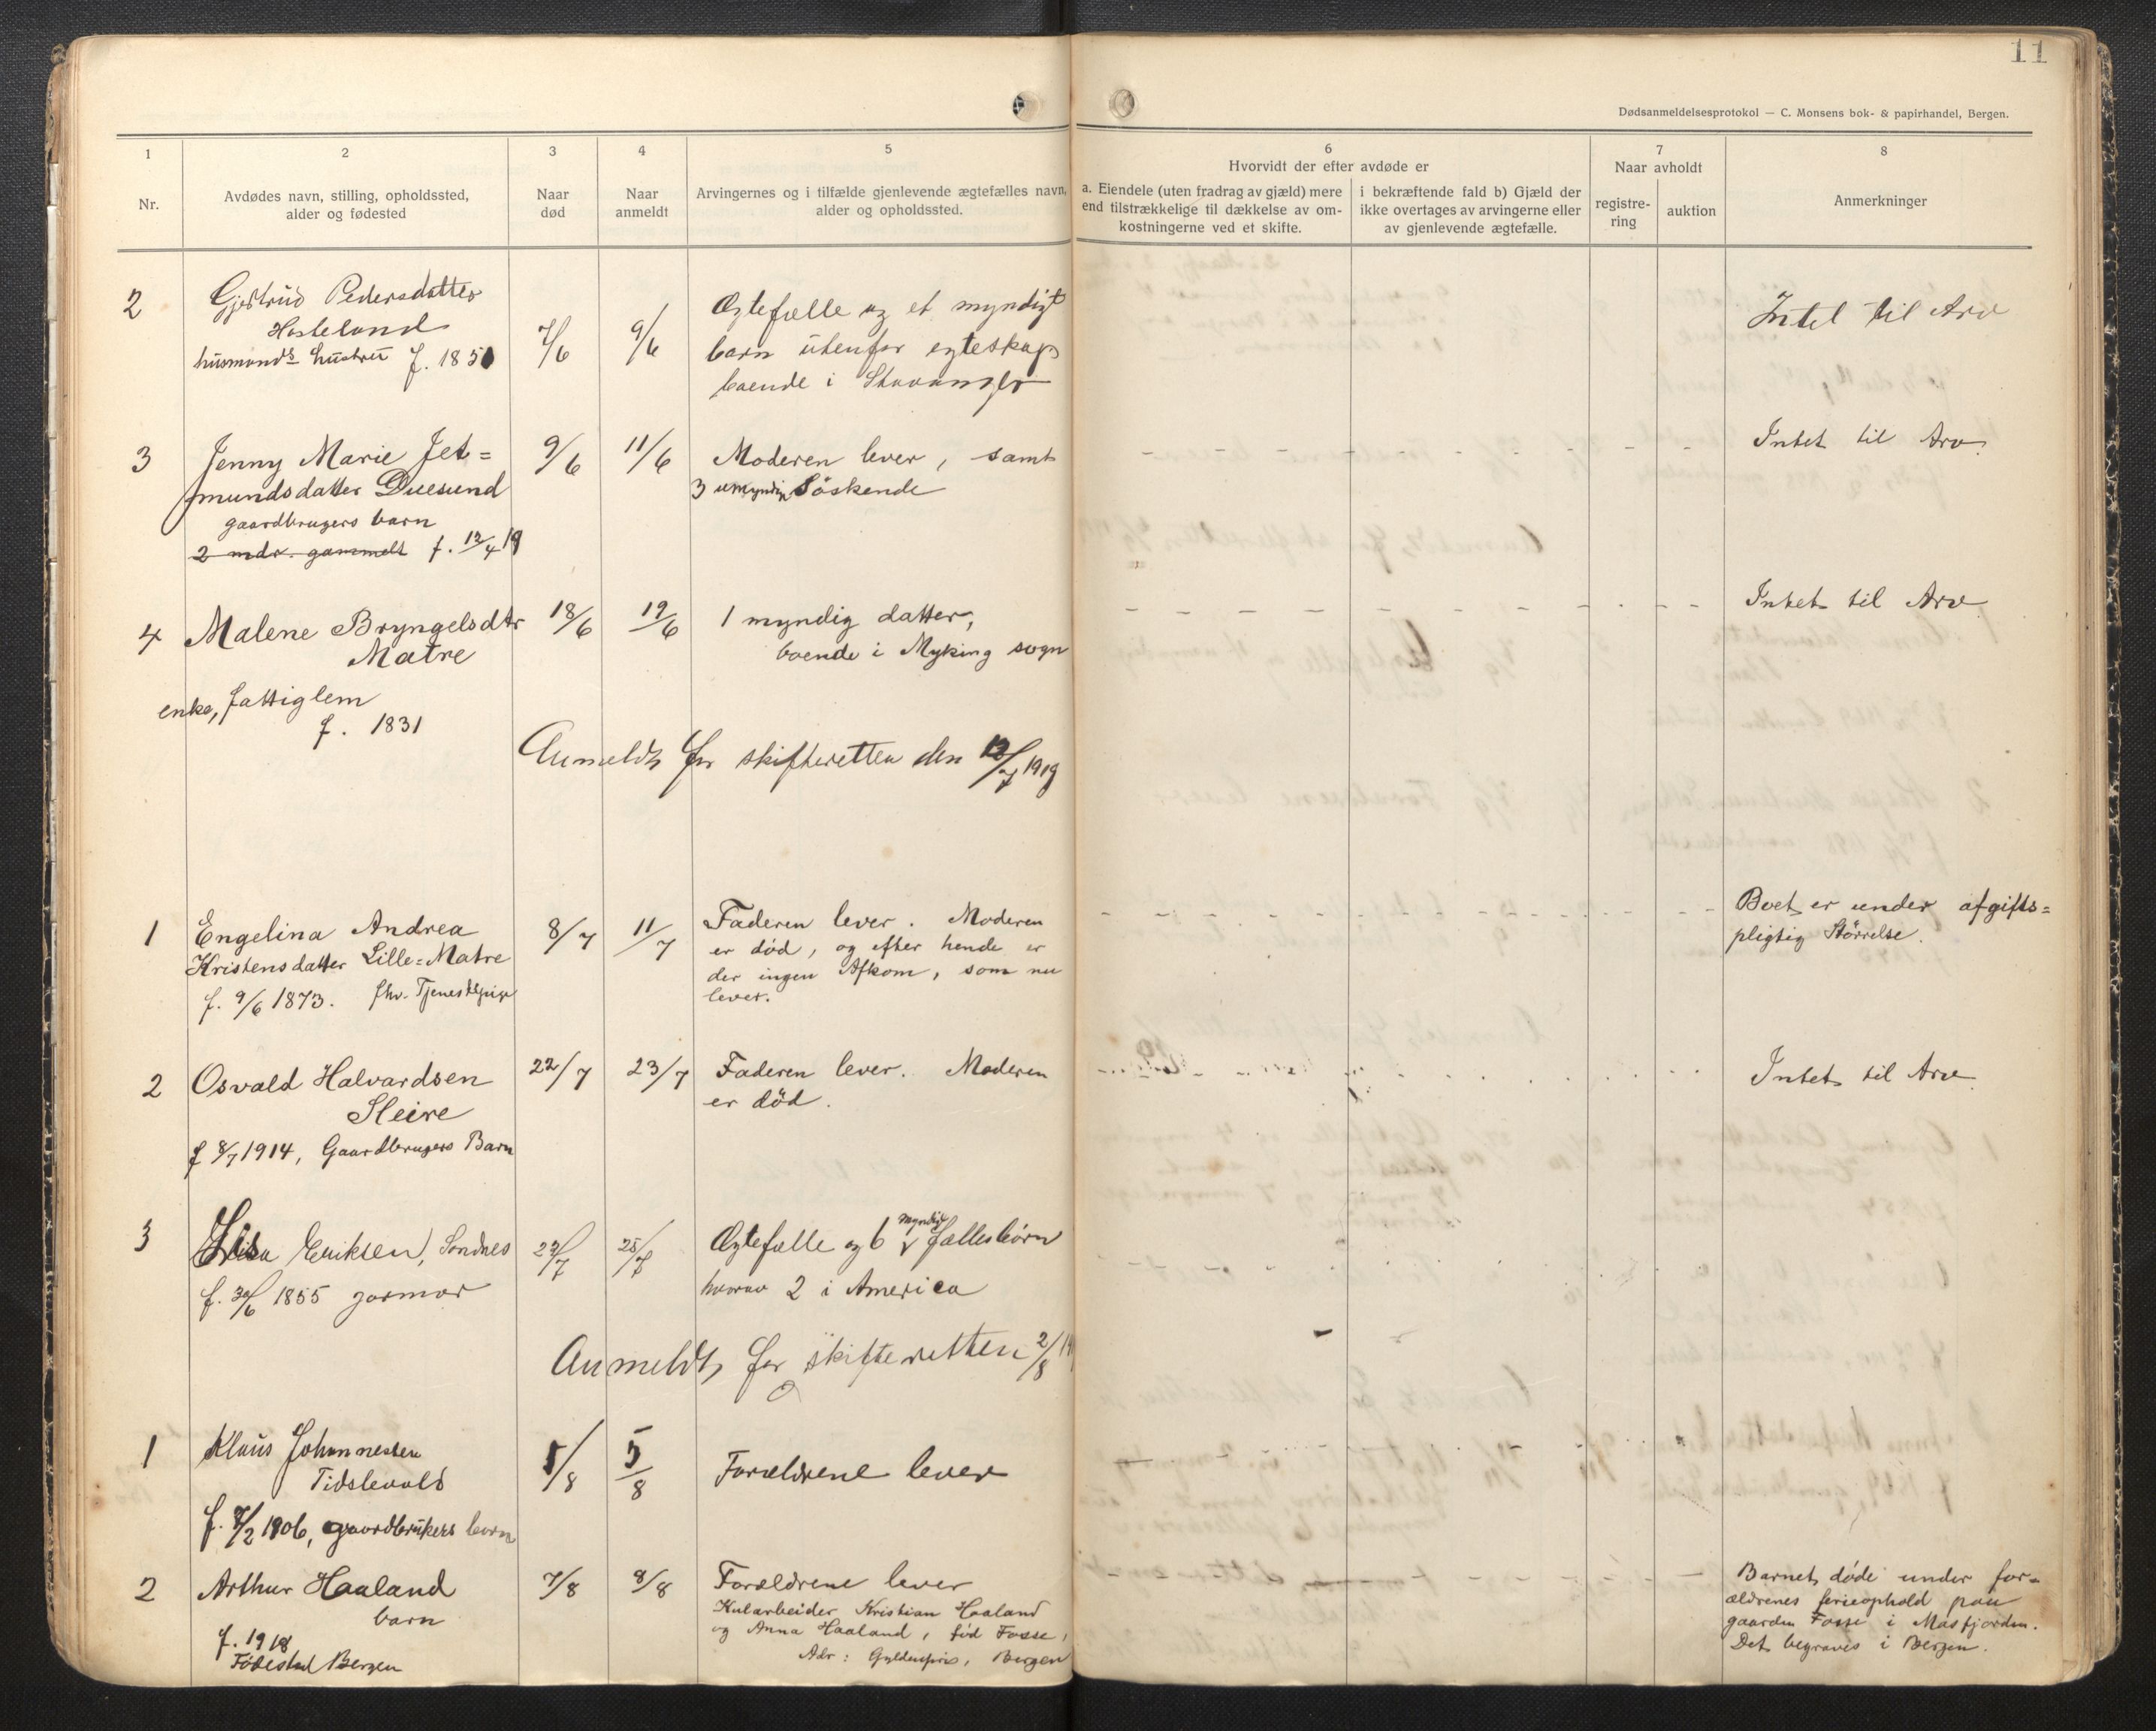 11
Dødsanmeldelsesprotokol — C. Monsens bok- & papirhandel, Bergen.
1
Nr.
2
Avdødes navn, stilling, opholdssted,
alder og fødested
3
Naar
død
4
Naar
anmeldt
5
Arvingernes og i tilfælde gjenlevende ægtefælles navn,
alder og opholdssted.
6
Hvorvidt der efter avdøde er
a. Eiendele (uten fradrag av gjæld) mere
end tilstrækkelige til dækkelse av om-
kostningerne ved et skifte.
i bekræftende fald b) Gjæld der
ikke overtages av arvingerne eller
av gjenlevende ægtefælle.
7
Naar avholdt
registre-
ring
auktion
8
Anmerkninger
2
Gjertrud Pedersdatter
Hosteland
husmands hustru f. 1850
7/6
9/6
Ægtefælle og et myndigt
barn utenfor egteskap
boende i Stavanger
Intet til Arv
3
Jenny Marie Jet=
mundsdatter Duesund
gaardbrugers barn
2 mdr. gammelt f. 12/4 19
9/6
11/6
Moderen lever, samt
3 umyndige Söskende
Intet til Arv.
4
Malene Bryngelsdtr
Matre
enke, fattiglem
f. 1831
18/6
19/6
1 myndig datter,
boende i Myking sogn
Intet til Arv
Anmeldt for skifteretten den 12/7 1919
1
Engelina Andrea
Kristensdatter Lille=Matre
f. 9/6 1873. fhv. Tjenestepige
8/7
11/7
Faderen lever. Moderen
er død, og efter hende er
der ingen Afkom, som nu
lever.
Boet er under afgifts=
pligtig Störrelse.
2
Osvald Halvardsen
Sleire
f 8/7 1914, Gaardbrugers Barn
22/7
23/7
Faderen lever. Moderen
er död.
Intet til Arv.
3
Eriksen, Sandnes
f. 30/6 1855 jormor
22/7
25/7
Ægtefælle og 6 myndige fællesbörn
hvorav 2 i America
Anmeldt for skifteretten 2/8 19
1
Klaus Johannessen
Tidslevold
f. 7/2 1906, gaardbrukers barn
5/8
5/8
Forældrene lever
2
Arthur Haaland
barn
f. 1918
Födested Bergen
7/8
8/8
Forældrene lever
Kularbeider Kristian Haaland
og Anna Haaland, född Fosse,
Adr: Gyldenpris, Bergen
Barnet döde under for-
ældrenes ferieophold paa
gaarden Fosse i Masfjorden.
Det begraves i Bergen.